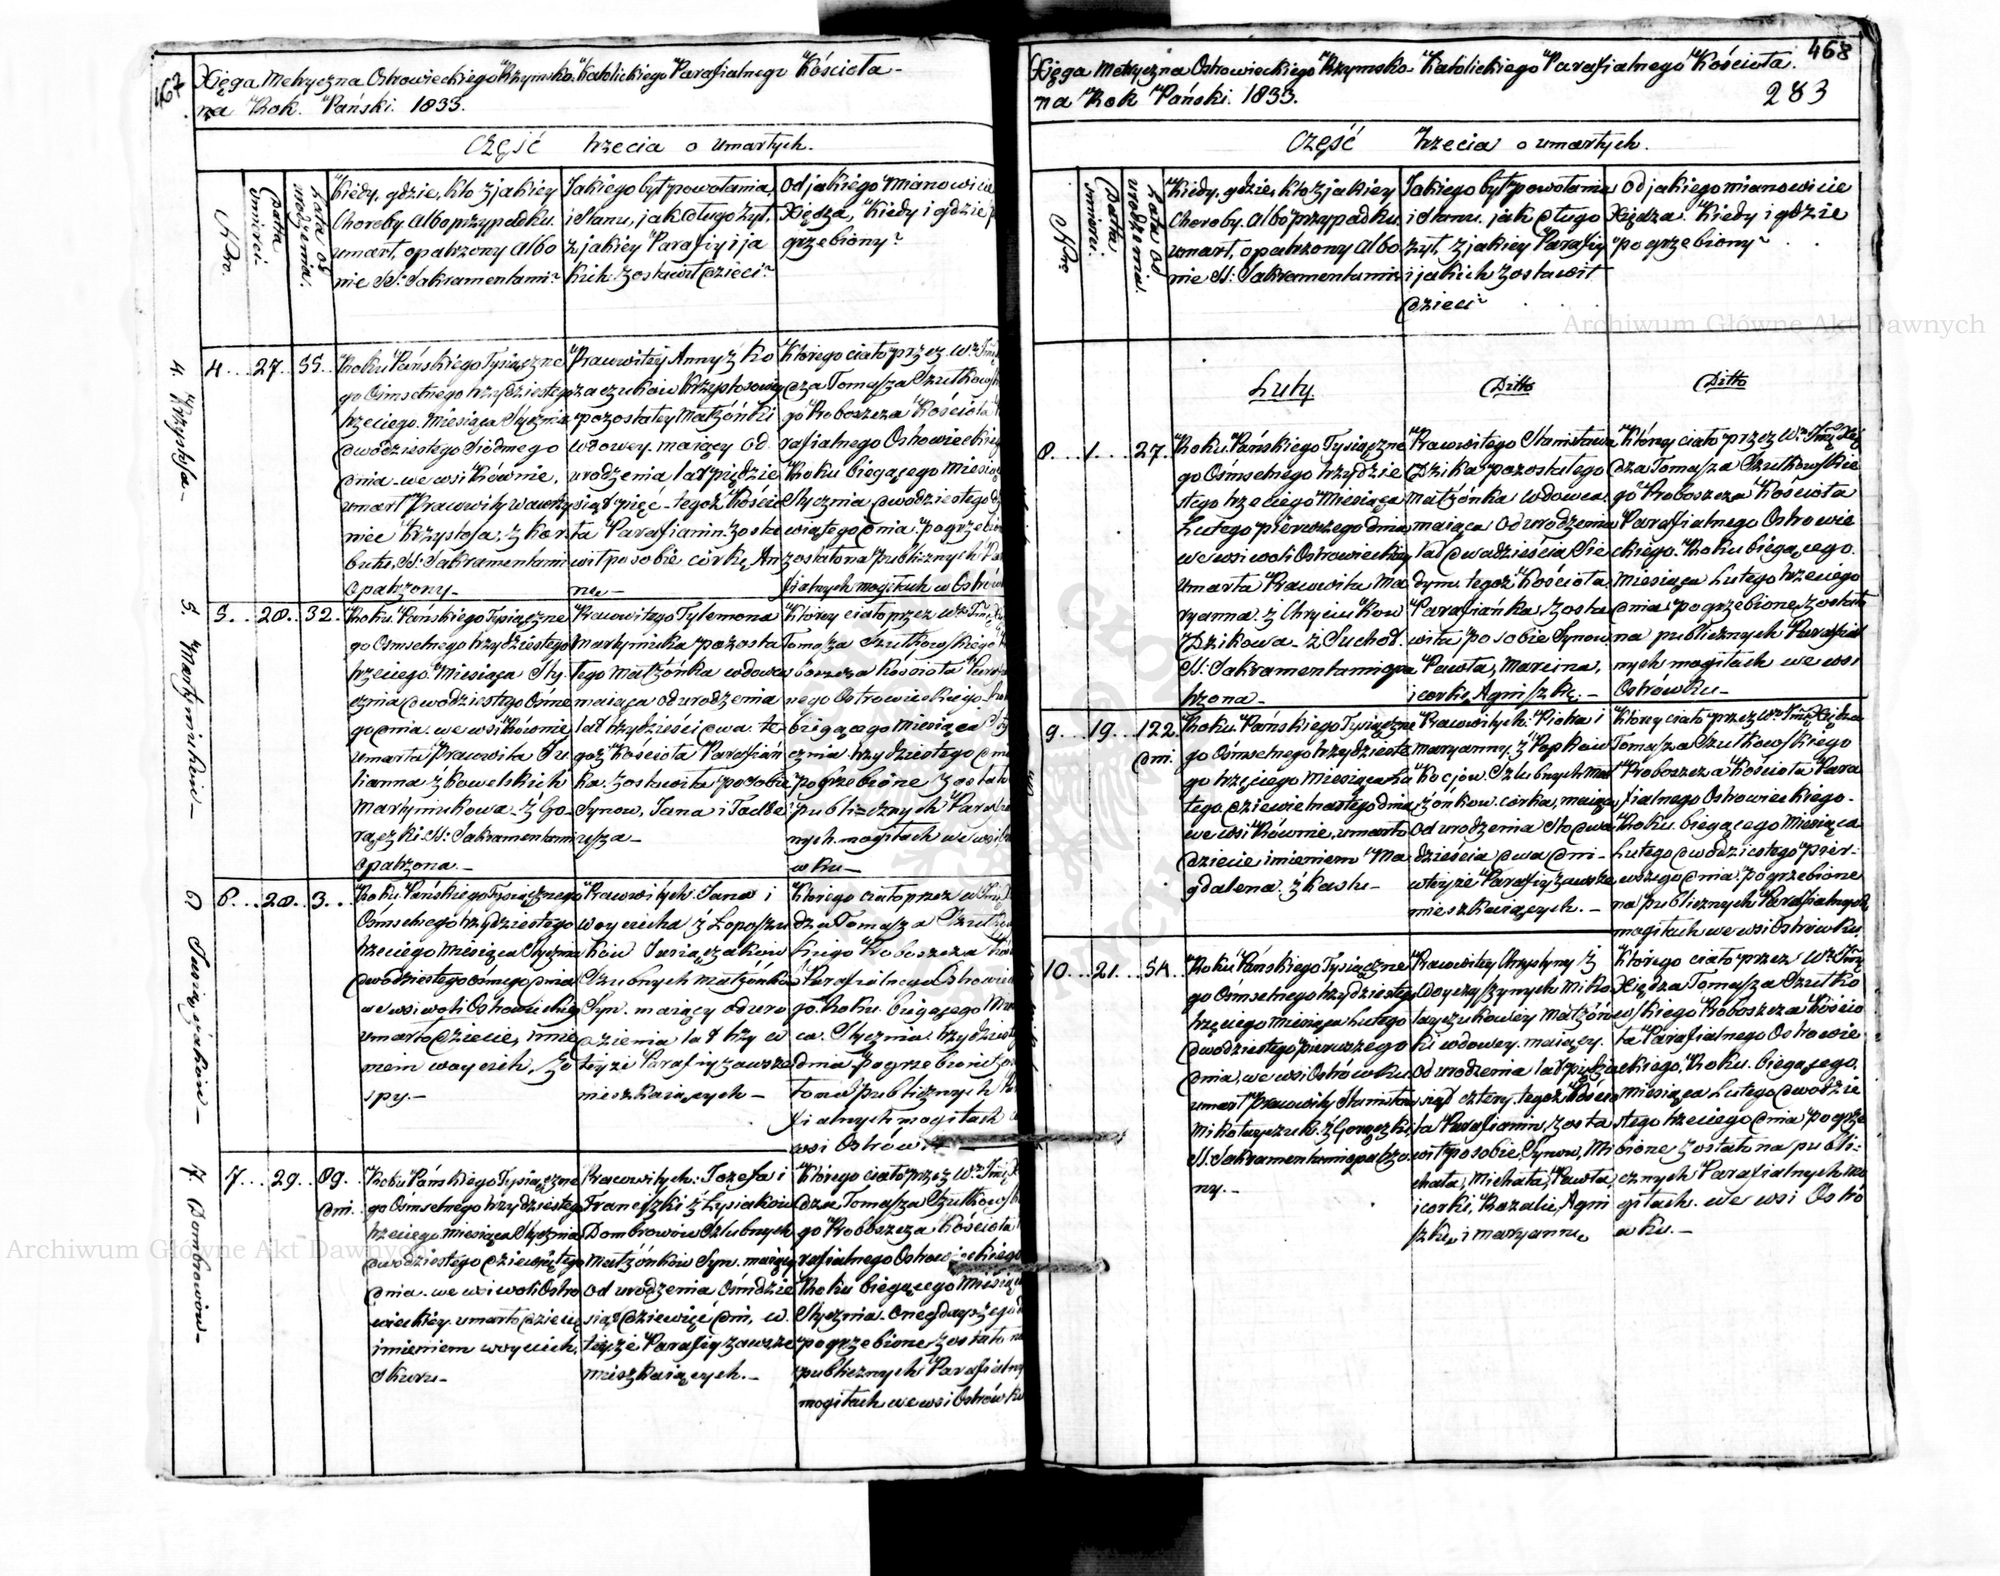 467
Xięga Metryczna Ostrowieckiego Rzymsko Katolickiego Parafialnego Kościoła
na Rok Pański. 1833.
Część trzecia o umarłych.
Nro.
Data śmierci.
Lata od urodzenia.
Kiedy, gdzie, kto z jakiey
Choroby. Albo przypadku.
umarł, opatrzony albo
nie SS: Sakramentami?
Jakiego był powołania,
i Stanu, jak długo żył,
z jakiey Parafiy i ja
kich zostawił dzieci?
Od jakiego Mianowicie
Xiędza, Kiedy i gdzie p
grzebiony?
4. Krzysztofa
4... 27. 55.
Roku Pańskiego Tysiączne
go Ośmsetnego trzydziestego
trzeciego. Miesiąca Stycznia
dwódziestego Siódmego
dnia we wsi Równie,
umarł Prawowity Wawrzy
niec Krzysztofa, z Kar
butu, SS: Sakramentami
opatrzony
Prawowitey Anny z Ko
zaczuków Krzysztofowey
pozostałey Małżonki
wdowey. maiący od
urodzenia lat pięćdzie
siąt pięć tegoż Kościo
ła Parafianin. Zosta
wił po sobie córkę An
nę
Którego ciało przez W: Jmć
dza Tomasza Szutkows
go Proboszcza Kościoła
rafialnego Ostrowieckie
Roku biegącego Miesią
Stycznia dwódziestego dz
wiątego dnia. pogrzebio
zostało na publicznych Pa
fialnych mogiłach w Ostrów
5. Martyniuków
5... 28. 32.
Roku Pańskiego Tysiączne
go Ośmsetnego trzydziestego
trzeciego. Miesiąca Sty
cznia dwódziestego Ósme
go dnia. we wsi Równie
umarła Prawowita Ju
lianna z Kowelskich
Martyniukowa. z Go
rączki SS: Sakramentami
opatrzona.
Prawowitego Fylemona
Martyniuka pozosta
łego Małżonka wdowa
maiąca od urodzenia
lat trzydzieści dwa. te
goż Kościoła Parafian
ka. zostawiła po sobie
Synow, Jana i Tadde
usza
Którey ciało przez W: Jmć X
Tomasza Szutkowskiego
boszcza Kościoła Para
nego Ostrowieckiego. Ro
biegącego Miesiąca Sty
cznia trzydziestego dnia
pogrzebione zostało
publicznych Parafia
nych mogiłach we wsi
wku
6 Jasiączaków
6... 28.. 3...
Roku Pańskiego Tysiącznego
Ośmsetnego trzydziestego
trzeciego Miesiąca Stycznia
dwódziestego ósmego dnia
we wsi woli Ostrowieckiey
umarło dziecie, imie
niem Woyciech, z o
spy.
Prawowitych Jana i
Woyciecha z Łoposzu
ków Jasiączaków
Szlubnych Małżonków
Syn. maiący od uro
dzenia lat trzy w
teyże Parafiy zawsze
mieszkaiących
Którego ciało przez W: Jmć
dza Tomasza Szutko
kiego Proboszcza Koś
Parafialnego Ostrowie
go. Roku biegącego Mie
ca. Stycznia. trzydziest
dnia pogrzebione zos
tało na publicznych Pa
fialnych mogiłach
wsi Ostrów
7 Dombrowów
7... 29.. 89.
dni.
Roku Pańskiego Tysiączne
go Ośmsetnego trzydziestego
trzeciego miesiąca Stycznia
dwódziestego dziewiątego
dnia we wsi woli Ostro
wieckiey umarło dziecie
imieniem Woyciech,
Prawowitych: Józefa i
Franciszki z Łysiaków
Dombrowów Szlubnych
Małżonków Syn. maiący
od urodzenia Ośmdzie
siąt dziewięć dni, w
teyże Parafiy zawsze
mieszkaiących.
Którego ciało przez W: Jmć X
dza Tomasza Szutkows
go Proboszcza Kościoła
rafialnego Ostrowieckiego
Roku biegącego Miesiąca
Stycznia. Onegdayszego d
pogrzebione zostało na
publicznych Parafialny
mogiłach we wsi Ostrówk
468
Xięga Metryczna Ostrowieckiego Rzymsko Katolickiego Parafialnego Kościoła.
na Rok Pański. 1833.
283
Część trzecia o umarłych.
Nro
Data śmierci.
Lata od urodzenia.
Kiedy, gdzie, kto z jakiey
Choroby. albo przypadku.
umarł, opatrzony albo
nie SS: Sakramentami
Jakiego był powołania
i Stanu, jak długo
żył, z jakiey Parafiy
i jakich zostawił
dzieci?
Od jakiego mianowicie
Xiędza. Kiedy i gdzie
pogrzebiony?
Luty.
Ditto
Ditto
8... 1... 27.
Roku Pańskiego Tysiączne
go Ośmsetnego trzydzie
stego trzeciego Miesiąca
Lutego pierwszego dnia
we wsi woli Ostrowieckiey
umarła Prawowita Ma
ryanna z Chryciukow
Dzikowa z Suchot.
SS: Sakramentami opa
trzona
Prawowitego Stanisława
Dzika pozostałego
małżonka wdowca.
maiąca od urodzenia
lat dwadzieścia Sie
dym tegoż Kościoła
Parafianka, zosta
wiła po sobie Synow.
Pawła, Marcina,
i corkę Agniszkę.
Którey ciało przez W: Jmć Xię
dza Tomasza Szutkowskie
go Proboszcza Kościoła
Parafialnego Ostrowie
ckiego. Roku biegącego.
Miesiąca Lutego trzeciego
dnia, pogrzebione zostało
na publicznych Parafial
nych mogiłach we wsi
Ostrówku
9... 19... 122
dni.
Roku Pańskiego Tysiączne
go Ośmsetnego trzydzieste
go trzeciego Miesiąca Lu
tego dziewietnastego dnia
we wsi Równie, umarło
dziecie imieniem Ma
gdalena z Kaszlu
Prawowitych: Piotra i
Maryanny z Popkow
Kociow. Szlubnych Mał
żonkow. córka, maiąca
od urodzenia Sto dwa
dzieścia dwa dni
w teyże Parafiy zawsze
mieszkaiących.
Którey ciało przez W: Jmć Xiędza
Tomasza Szutkowskiego
Proboszcza Kościoła Para
fialnego Ostrowieckiego.
Roku biegącego Miesiąca
Lutego dwódziestego pier
wszego dnia. pogrzebione
na publicznych Parafialnych
mogiłach we wsi Ostrówku.
10... 21... 54.
Roku Pańskiego Tysiączne
go Ośmsetnego trzydziestego
trzeciego miesiąca Lutego
dwódziestego pierwszego
dnia, we wsi Ostrówku
umarł Prawowity Stanisław
Mikołayczuk. z Gorączki,
SS. Sakramentami opatrzo
ny.
Prawowitey Chrystyny z
Miko
łayczukowey Małżon
ki wdowey. maiący.
od urodzenia lat pięćdzie
siąt cztery. tegoż Kościo
ła Parafianin, zosta
wił po sobie Synow, Mi
chała, Michała, Pawła,
i corki, Rozalię, Agni
szkę, i Maryannę.
Którego ciało przez W: Jmć
Xiędza Tomasza Szutko
wskiego Proboszcza Kościo
ła Parafialnego Ostrowie
ckiego, Roku. biegącego,
miesiąca Lutego dwódzie
stego trzeciego dnia pogrze
bione zostało na publi
cznych Parafialnych mo
giłach. we wsi Ostró
wku.
Archiwum Główne Akt Dawnych
Archiwum Główne Akt Dawnych